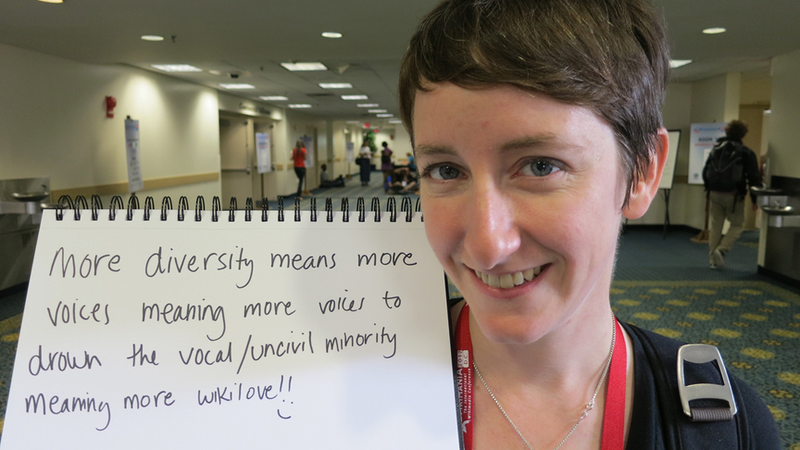 More diversity means more
voices meaning more voices to
drown the vocal/uncivil minority
meaning more wikilove!!